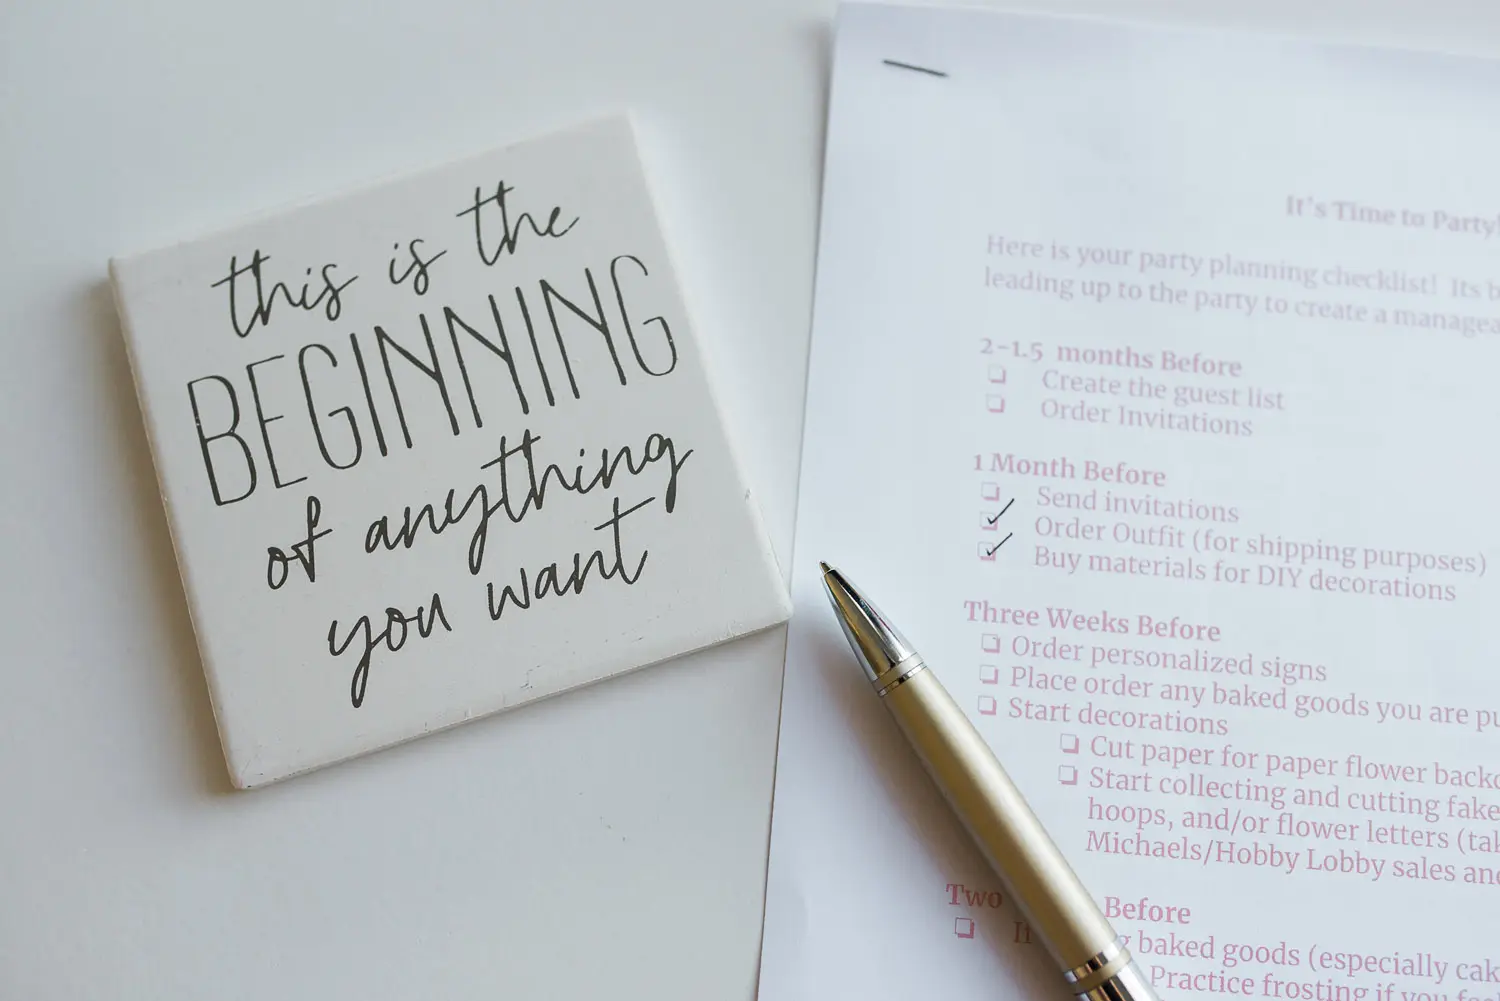 this is the
BEGINNING
of anything
you want
It's Time to Party!
Here is your party planning checklist! Its
leading up to the party to create a
2-1.5 months Before
Create the guest list
Order Invitations
1 Month Before
Send invitations
Order Outfit (for shipping purposes)
Buy materials for DIY decorations
Three Weeks Before
Order personalized signs
Place order any baked goods you are
Start decorations
Cut paper for paper flower
Start collecting and cutting fake
hoops, and/or flower letters
Michaels/Hobby Lobby sales
Two Before
baked goods (especially
Practice frosting if you